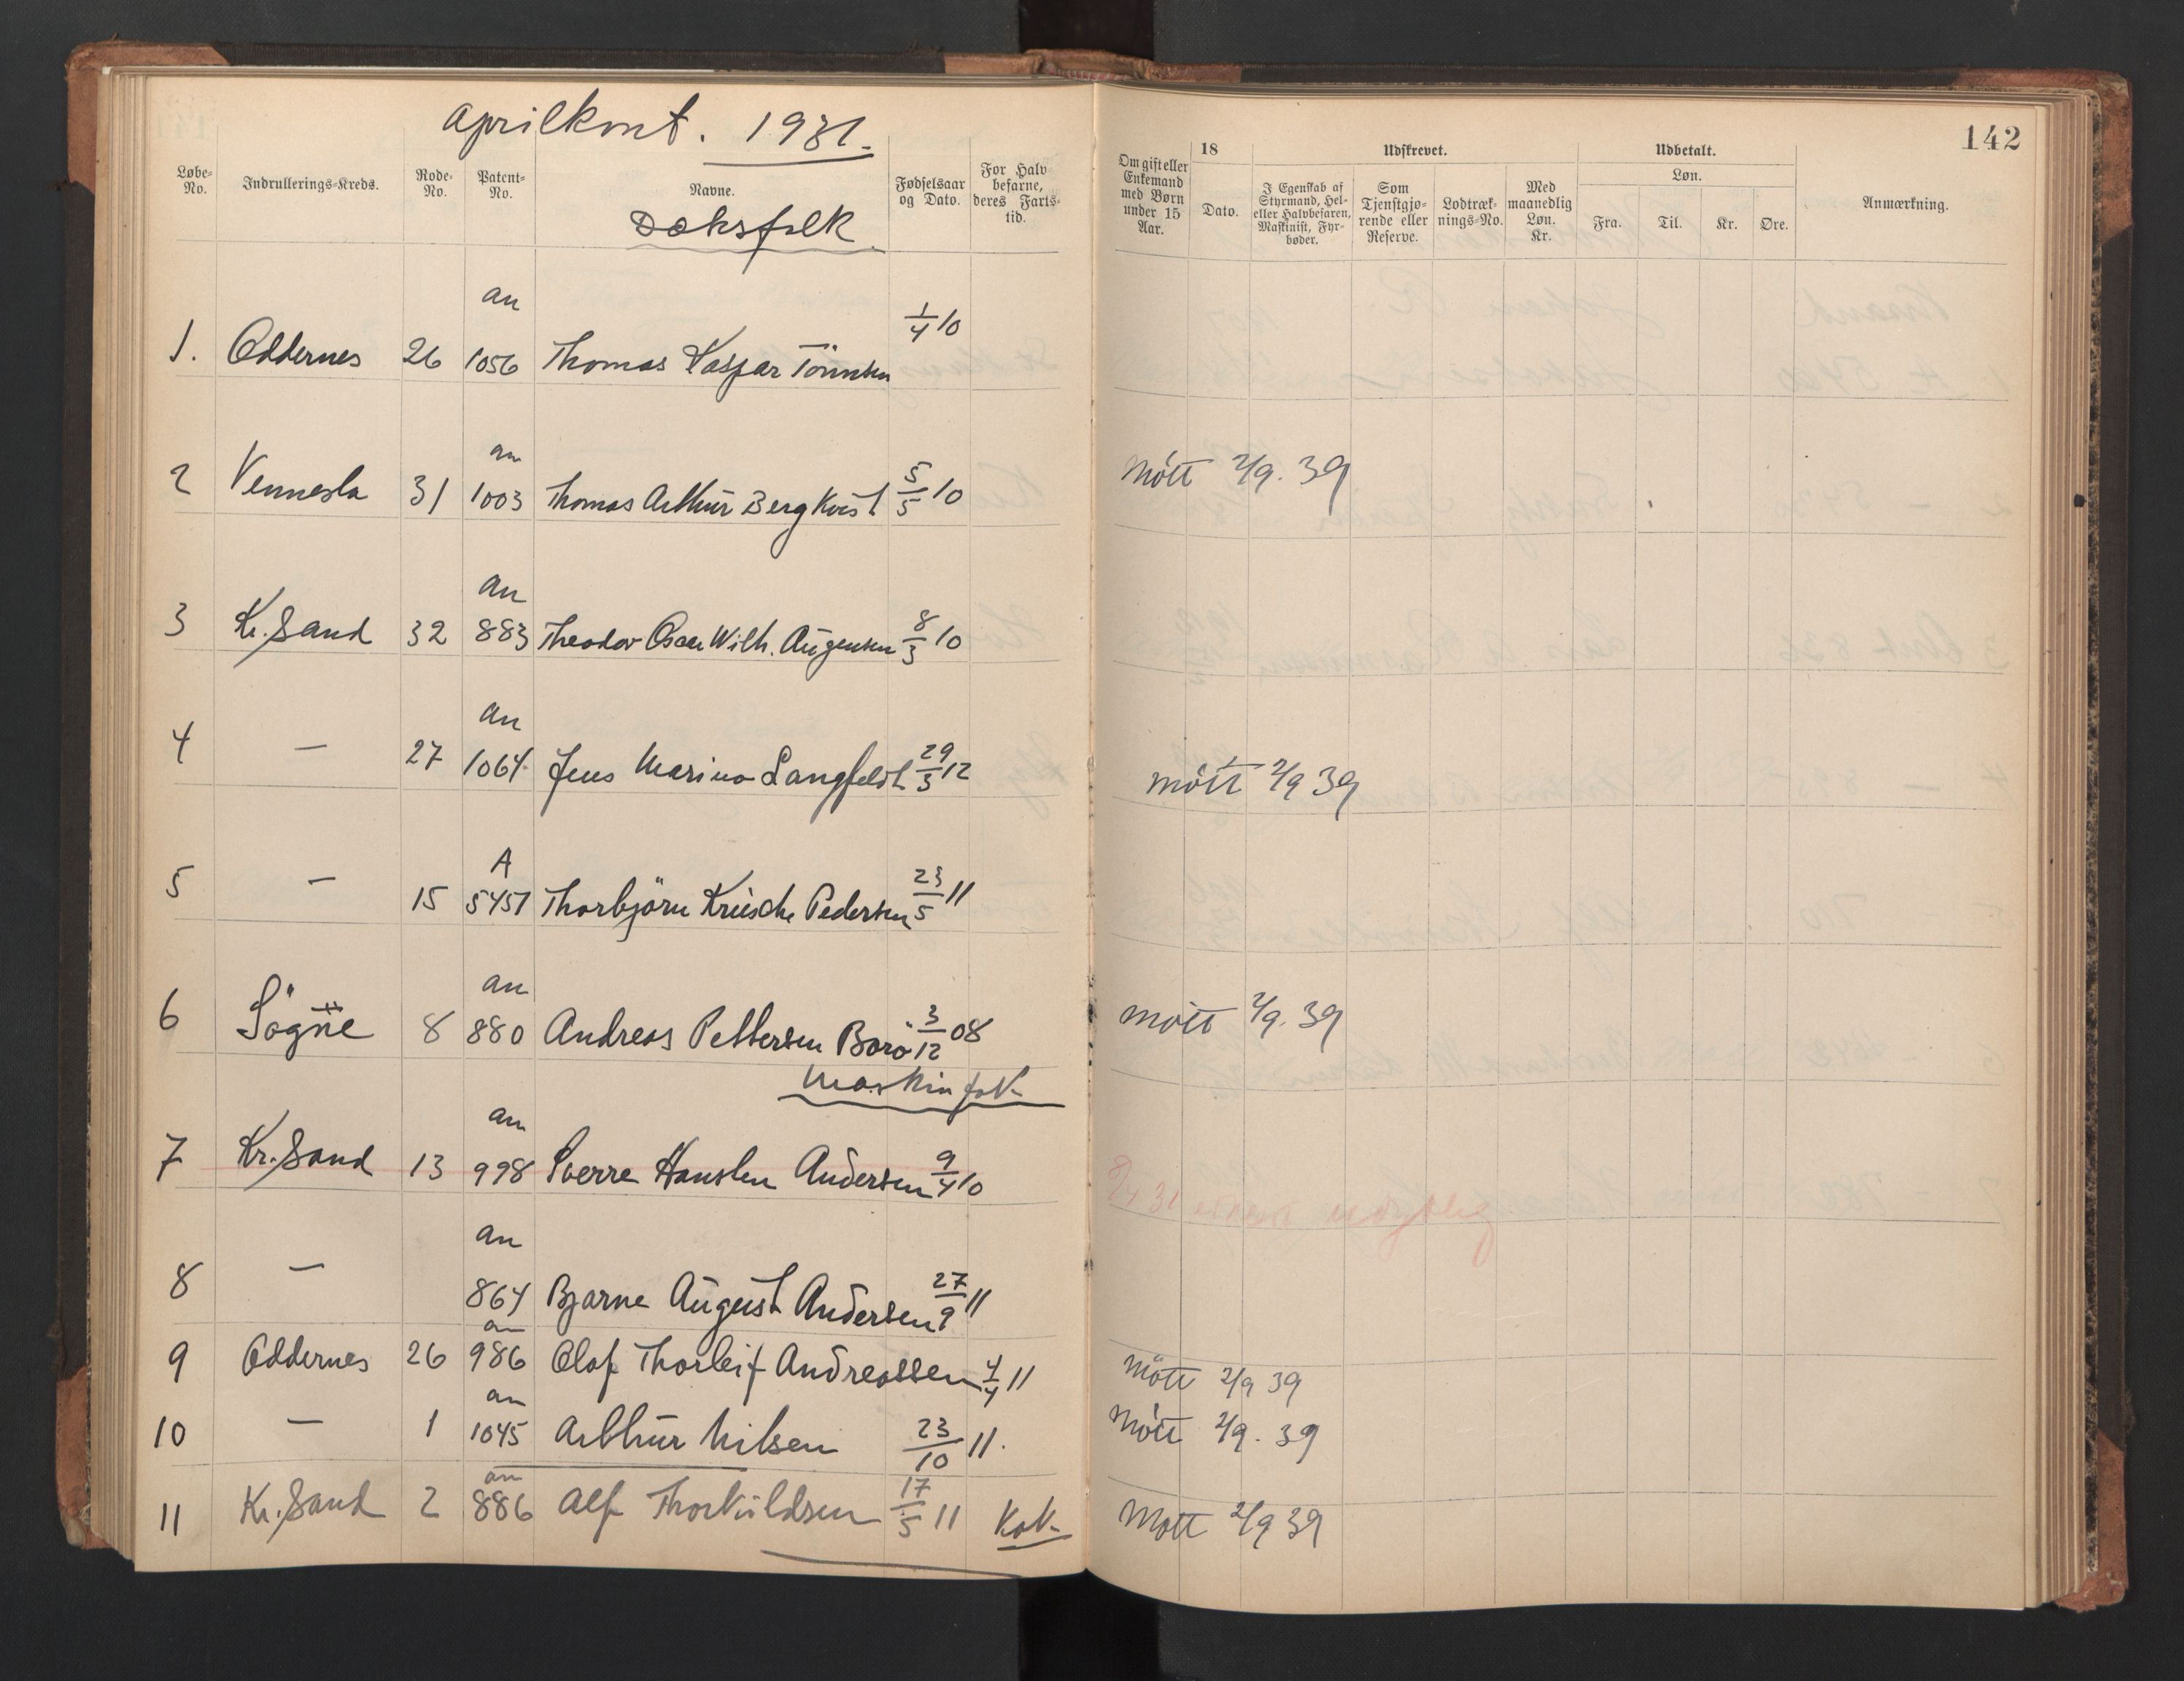 aprilkont. 1931.
142
Løbe-No.
Indrullerings-Kreds.
Rode-No.
Patent-No.
Navne.
Fødselsaar og Dato.
For Halvbefarne, deres Fartstid.
Om gift eller Enkemand med Børn under 15 Aar.
18
Dato.
Udskrevet.
I Egenskab af Styrmand, Hel- eller Halvbefaren, Maskinist, Fyrbøder.
Som Tjenstgjørende eller Reserve.
Lodtræknings-No.
Med maanedlig Løn. Kr.
Udbetalt.
Løn.
Fra.
Til.
Kr.
Øre.
Anmærkning.
Dæksfolk
an
1. Oddernes 26 1056 Thomas Kaspar Tönnesen 1/4 10
an
2 Vennesla 31 1003 Thomas Arthur Berg Kvist 5/5 10 Mött 2/9. 39
an
3 Kr.Sand 32 883 Theodor Oscar Wilh. Augensen 8/3 10
an
4 — 27 1064 Jens Marino Langfeldt 29/3 12 mött 2/9 39
A
5 — 15 5451 Thorbjörn Pedersen 23/5 11
an
6 Sögne 8 880 Andreas Pettersen Borö 3/12 08 mött 2/9. 39
Maskinfolk
an
7 Kr.Sand 13 998 Sverre Andersen 9/4 10 31
an
8 — 864 Bjarne August Andersen 27/9 11
an
9 Oddernes 26 986 Olaf Thorleif Andreassen 4/4 11 Mött 2/9 39
an
10 — 1 1045 Arthur Nilsen 23/10 11. Mött 2/9. 39
an
11 Kr.Sand 2 886 Alf Thorkildsen 17/5 11 Kok Mött 2/9 39